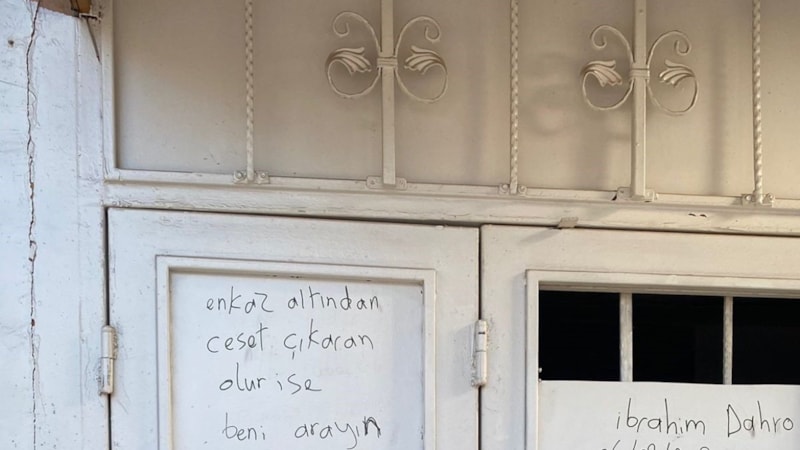 enkaz altından
ceset çıkaran
olur ise
beni arayın
ibrahim Dahro